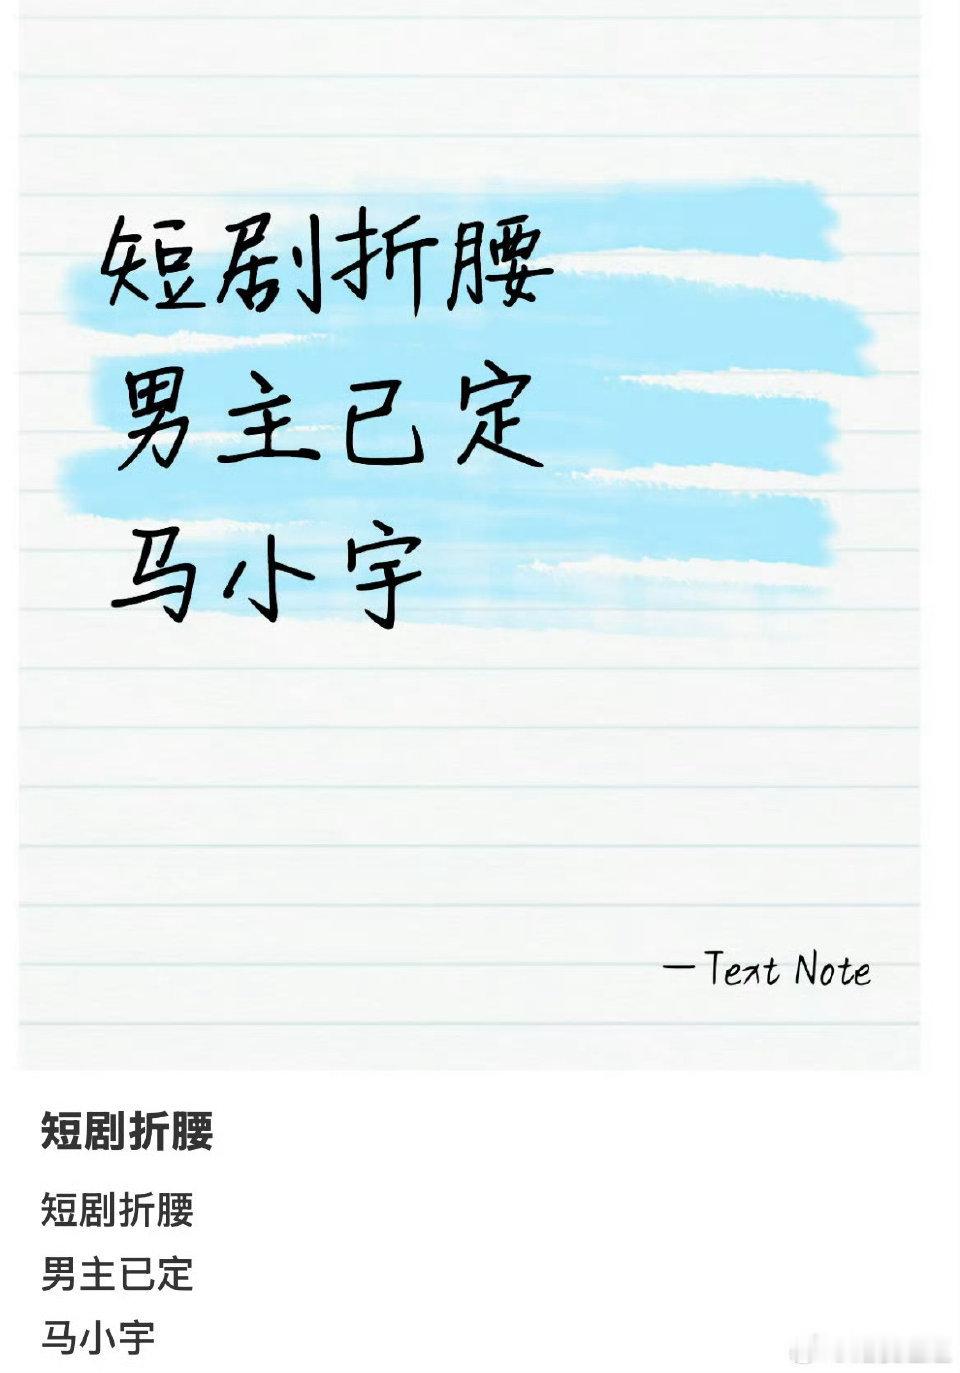 短剧折腰
男主已定
马小宇
—Text Note
短剧折腰
短剧折腰
男主已定
马小宇